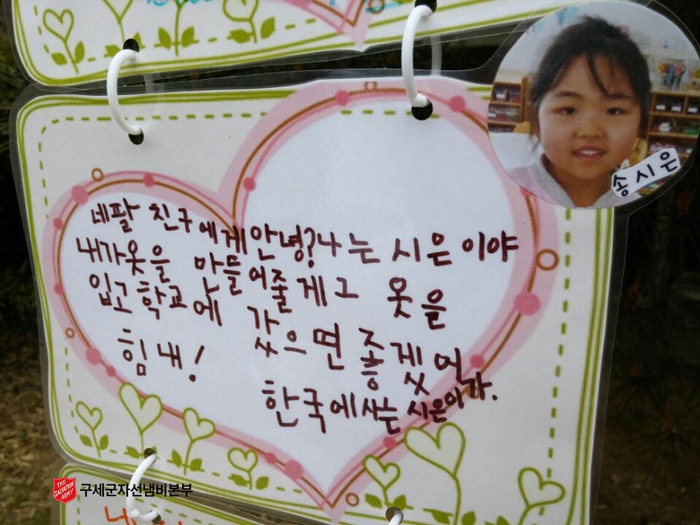 송시은
네팔 친구에게 안녕? 나는 시은이야
내가 옷을 만들어줄게 그 옷을
입고 학교에 갔으면 좋겠어
힘내!
한국에 사는 시은이가.
THE SALVATION ARMY
구세군자선냄비본부